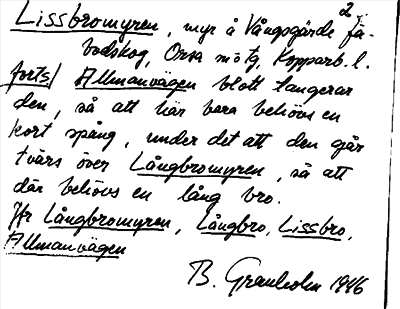 2.
Lissbromyren, myr å Vångsgärde fä-
bodskog, Orsa sn o tg, Kopparb. l.
forts/ Allmanvägen blott tangerar
den, så att här bara behövs en
kort spång, under det att den går
tvärs över Långbromyren, så att
där behövs en lång bro.
Jfr Långbromyren, Långbro, Lissbro,
Allmanvägen
B. Granholm 1946